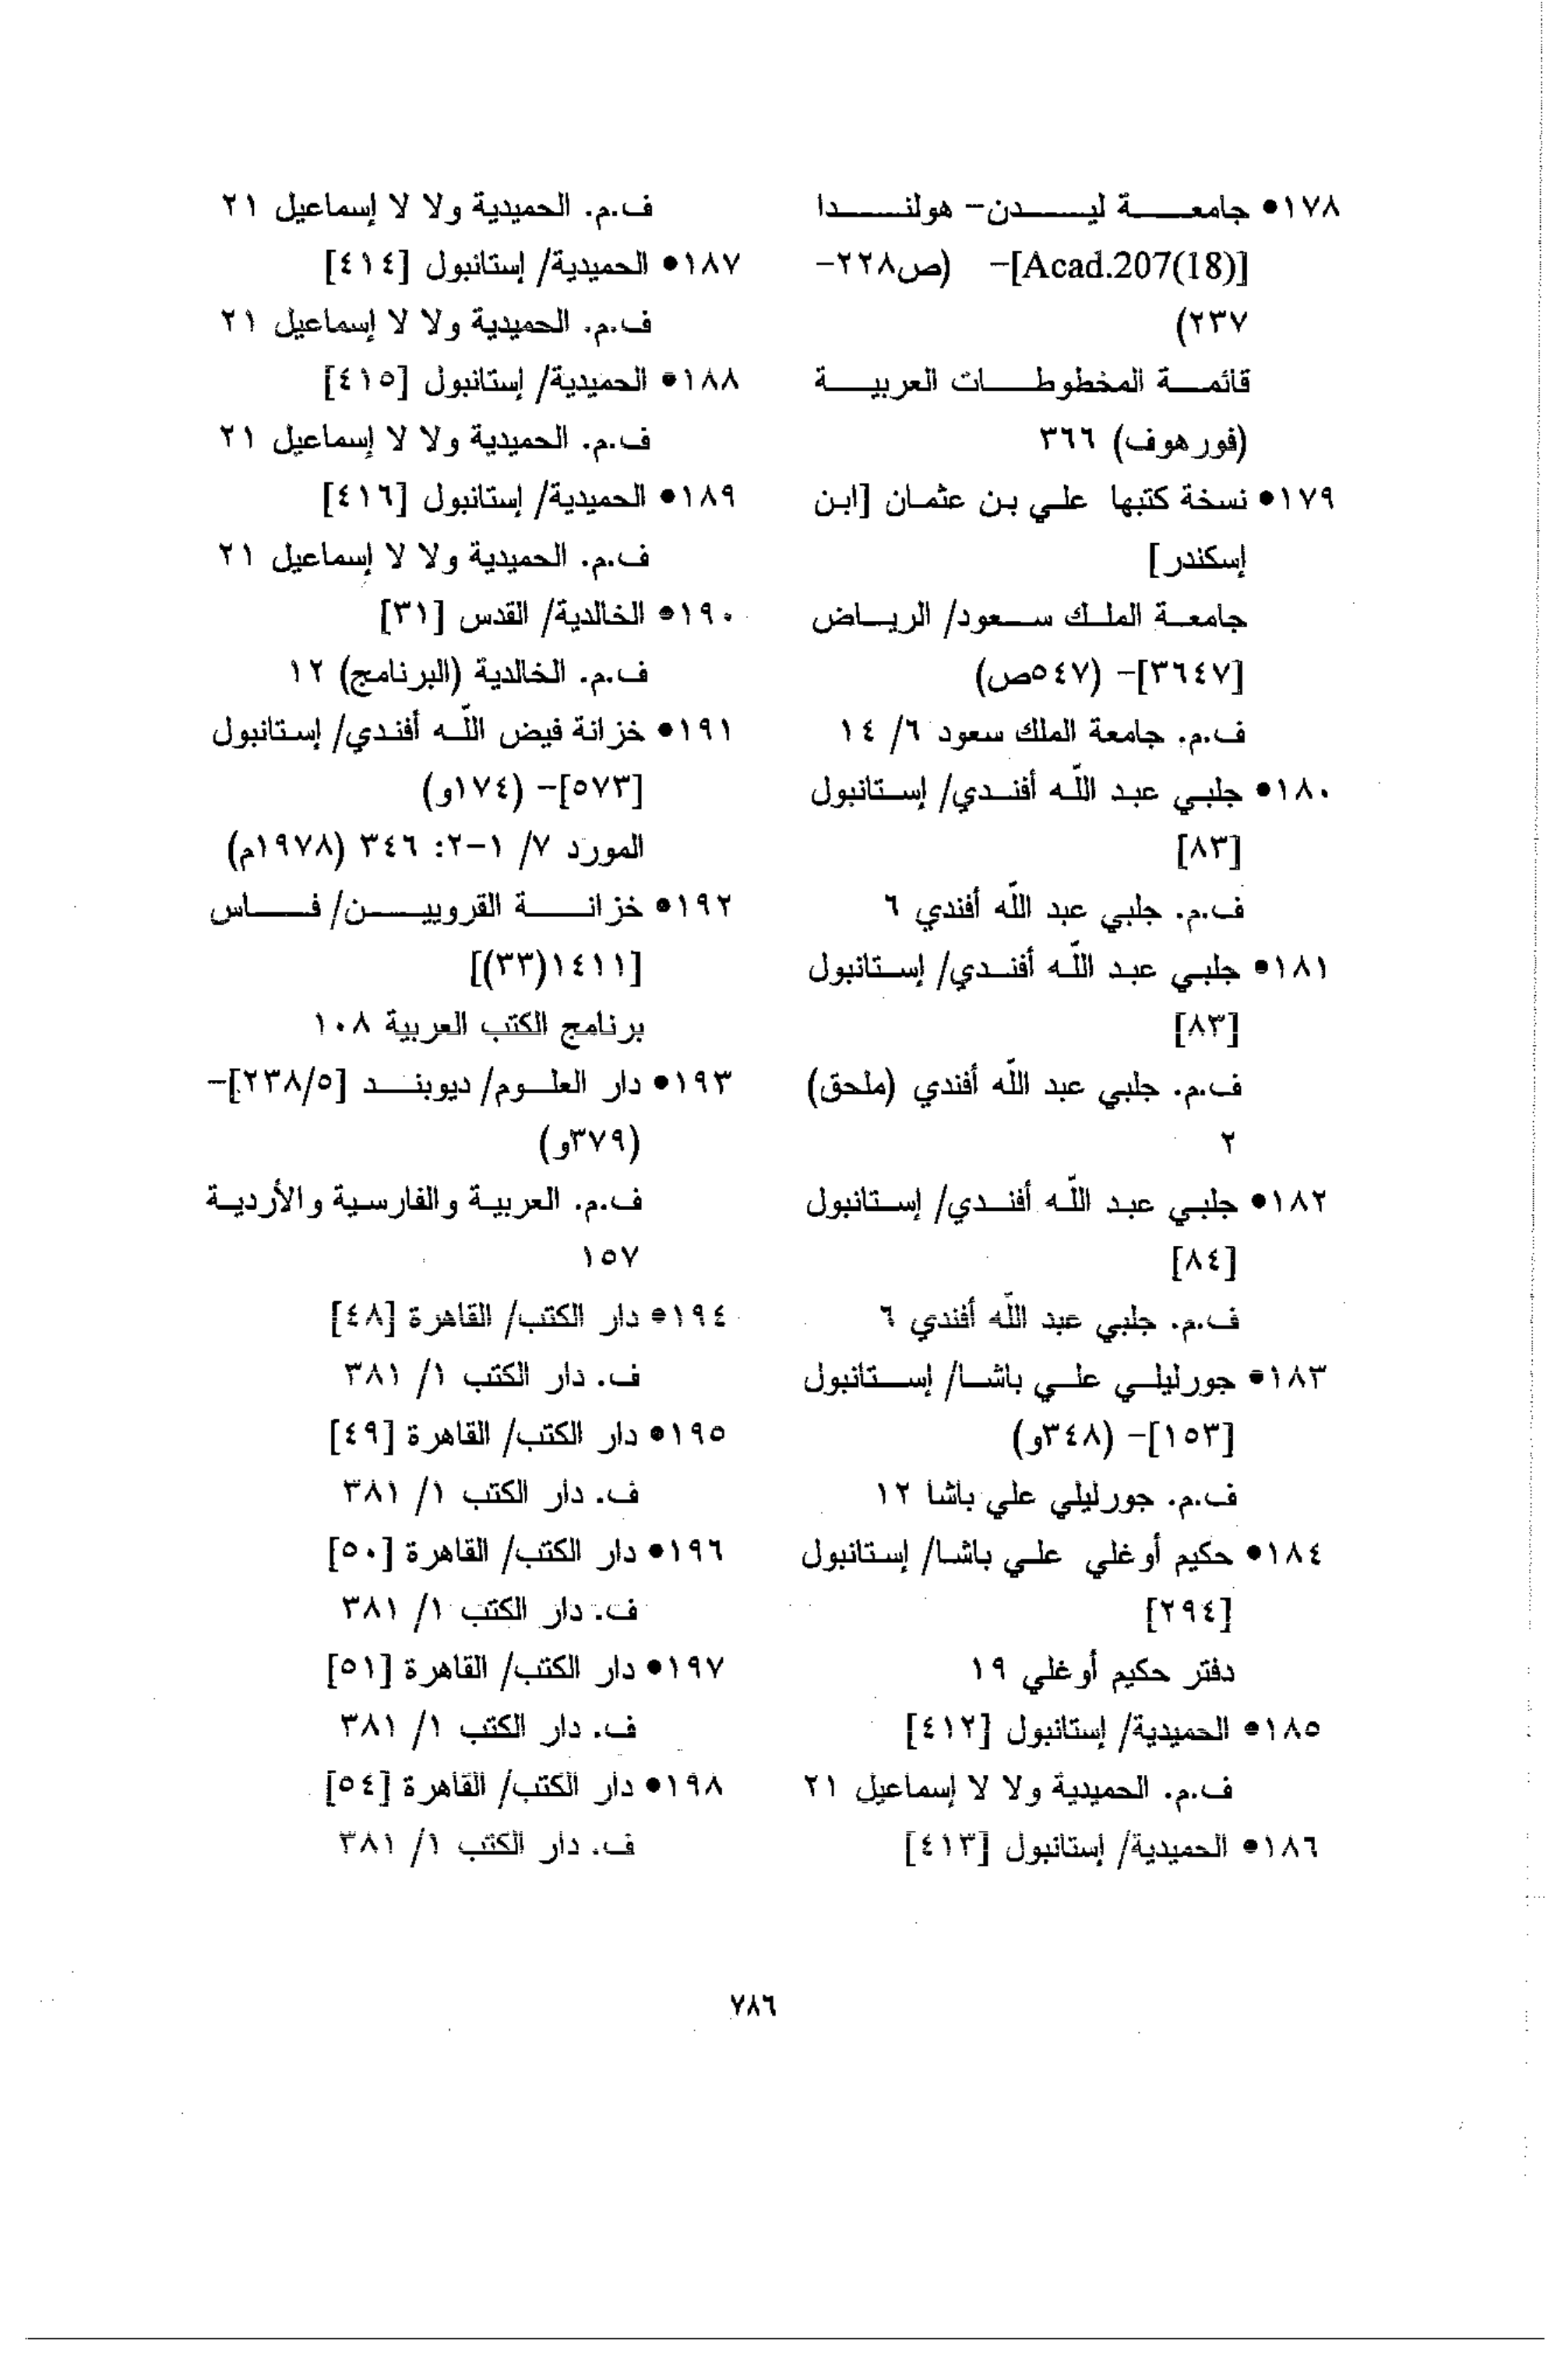 ١٧٨● جامعة ليدن- هولندا
[Acad.207(18)]- (ص٢٢٨-
٢٣٧)
قائمة المخطوطات العربية
(فورهوف) ٣٦٦
١٧٩● نسخة كتبها علي بن عثمان [ابن
إسكندر]
جامعة الملك سعود/ الرياض
[٣٦٤٧]- (٥٤٧ص)
ف.م. جامعة الملك سعود ٦/ ١٤
١٨٠● جلبي عبد اللّه أفندي/ إستانبول
[٨٣]
ف.م. جلبي عبد اللّه أفندي ٦
١٨١● جلبي عبد اللّه أفندي/ إستانبول
[٨٣]
ف.م. جلبي عبد اللّه أفندي (ملحق)
٢
١٨٢● جلبي عبد اللّه أفندي/ إستانبول
[٨٤]
ف.م. جلبي عبد اللّه أفندي ٦
١٨٣● جورليلي علي باشا/ إستانبول
[١٥٣]- (٣٤٨و)
ف.م. جورليلي علي باشا ١٢
١٨٤● حكيم أوغلي علي باشا/ إستانبول
[٢٩٤]
دفتر حكيم أوغلي ١٩
١٨٥● الحميدية/ إستانبول [٤١٢]
ف.م. الحميدية ولا لا إسماعيل ٢١
١٨٦● الحميدية/ إستانبول [٤١٣]
ف.م. الحميدية ولا لا إسماعيل ٢١
١٨٧● الحميدية/ إستانبول [٤١٤]
ف.م. الحميدية ولا لا إسماعيل ٢١
١٨٨● الحميدية/ إستانبول [٤١٥]
ف.م. الحميدية ولا لا إسماعيل ٢١
١٨٩● الحميدية/ إستانبول [٤١٦]
ف.م. الحميدية ولا لا إسماعيل ٢١
١٩٠● الخالدية/ القدس [٣١]
ف.م. الخالدية (البرنامج) ١٢
١٩١● خزانة فيض اللّه أفندي/ إستانبول
[٥٧٣]- (١٧٤و)
المورد ٧/ ١-٢: ٣٤٦ (١٩٧٨م)
١٩٢● خزانة القرويين/ فاس
[١٤١١(٣٣)]
برنامج الكتب العربية ١٠٨
١٩٣● دار العلوم/ ديوبند [٢٣٨/٥]-
(٣٧٩و)
ف.م. العربية والفارسية والأردية
١٥٧
١٩٤● دار الكتب/ القاهرة [٤٨]
ف. دار الكتب ١/ ٣٨١
١٩٥● دار الكتب/ القاهرة [٤٩]
ف. دار الكتب ١/ ٣٨١
١٩٦● دار الكتب/ القاهرة [٥٠]
ف. دار الكتب ١/ ٣٨١
١٩٧● دار الكتب/ القاهرة [٥١]
ف. دار الكتب ١/ ٣٨١
١٩٨● دار الكتب/ القاهرة [٥٤]
ف. دار الكتب ١/ ٣٨١
٧٨٦